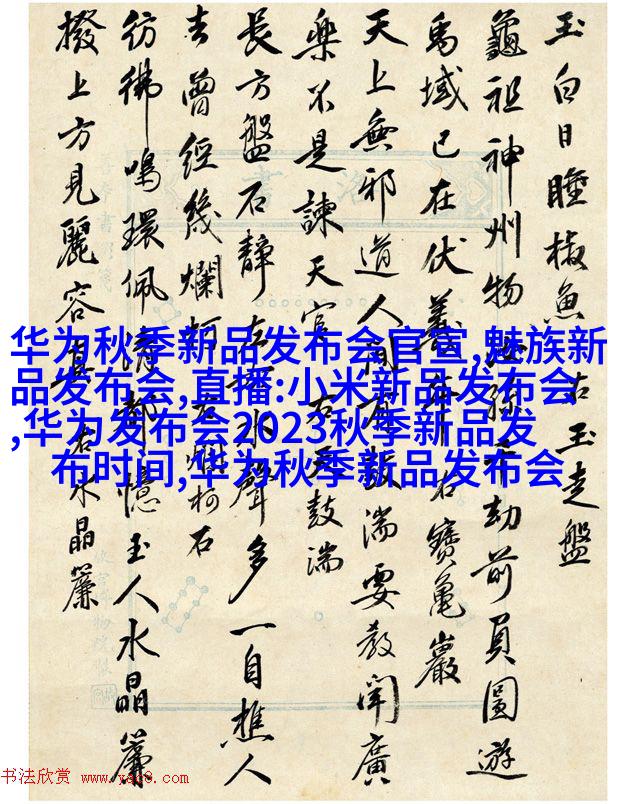 玉白日椒魚 右玉走盤
龜祖神州物千劫前負圖遊
馬域已在伏羲年 右寶龜巖
天上無邪道人間有鼓湍要教聞廣
樂不是諫天官 右天鼓湍
長方盤石靜左右水聲多一自樵人
去曾經幾爛柯 右爛柯石
彷彿鳴環佩清都憶玉人水晶簾
撥上方見麗容真 右水晶簾
洛書
华为秋季新品发布会官宣,魅族新
品发布会,直播:小米新品发布会
,华为发布会2023秋季新品发
布时间,华为秋季新品发布会
书法欣赏 www.yac8.com